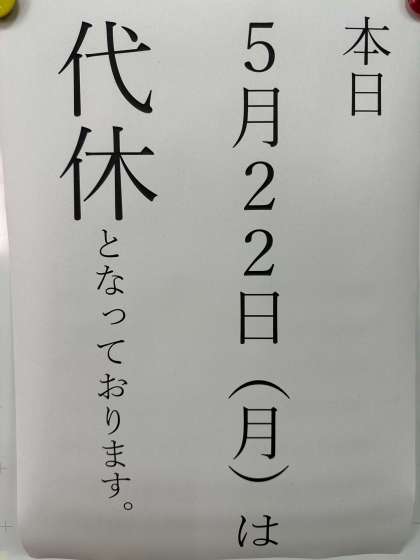 本日
５月２２日（月）は
代休となっております。